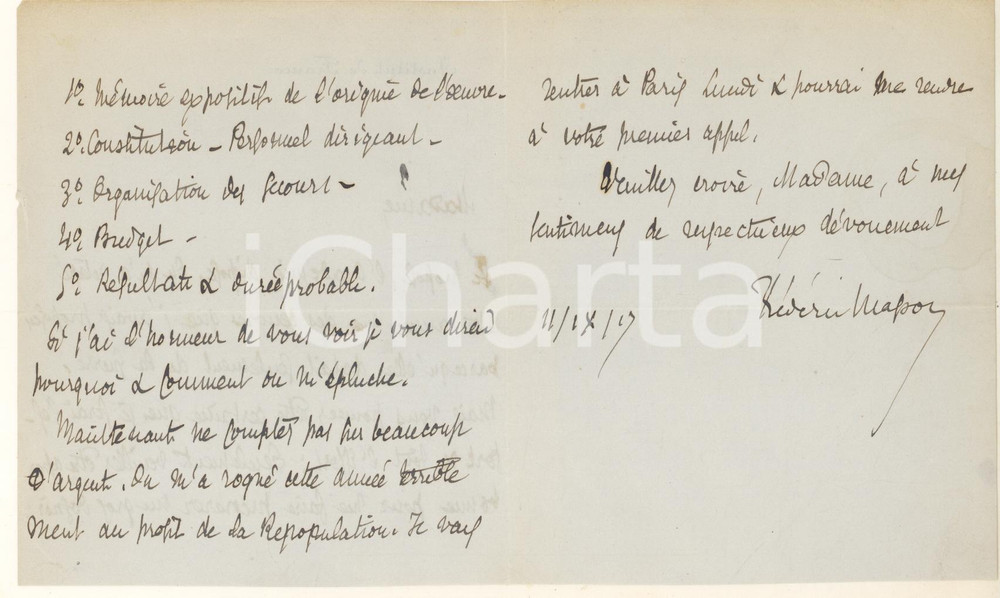 1º. Mémoire expositif de l'origine de l'oeuvre -
2º. Constitution - Personnel dirigeant -
3º. Organisation des Secours -
4º. Budget -
5º. Résultats & durée probable.
Si j'ai l'honneur de vous voir je vous dirai
pourquoi & comment on m'épluche.
Maintenant ne comptez pas sur beaucoup
d'argent. On m'a rogné cette année terrible
ment au profit de la Repopulation. Je vais
rentrer à Paris Lundi & pourrai me rendre
à votre premier appel.
Veuillez croire, Madame, à mes
sentimens de respectueux dévouement
Frédéric Masson
11/IX/17
iCharta